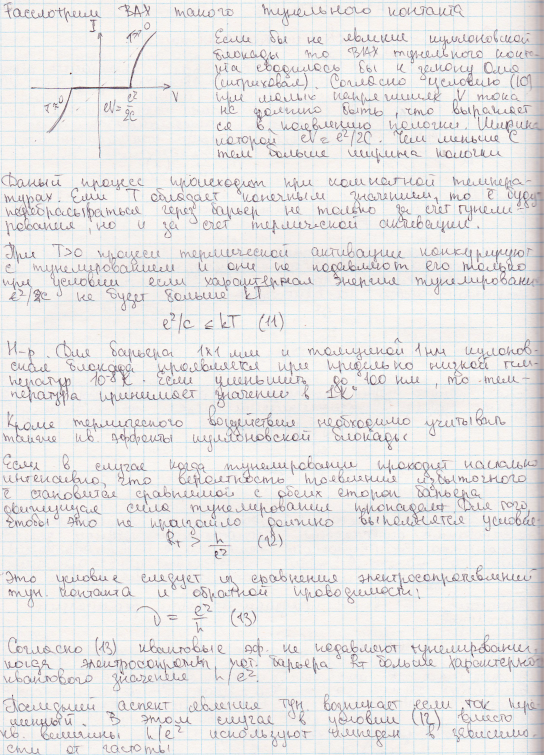 Рассмотрим ВАХ такого тунельного контакта
I
T=0
T=0
eV = e²/2C
V
Если бы не явление кулоновской
блокады то ВАХ тунельного конта-
кта сводилось бы к закону Ома
(штриховая). Согласно условию (10)
при малых напряжениях V тока
не должно быть, что выражает
ся в появлению полочки. Ширина
которой eV = e²/2C. Чем меньше C
тем больше ширина полочки
Даный процесс происходит при комнатной темпера-
турах. Если T обладает конечным значением, то ē буду
перебрасываться через барьер не только за счет тунели-
рования, но и за счет термической активации.
При T>0 процесс термической активации конкурируют
с тунелированием и они не подавляют его только
при условии если характерная энергия тунелирования
e²/2c не будет больше kT
e²/c ≤ kT (11)
Н-р. Для барьера 1x1 мм и толщиной 1нм кулонов-
ская блокада проявляется при предельно низкой тем-
ператур 10⁻³ K. Если уменьшить до 100 нм, то тем-
пература принимает значений в 1K°
Кроме термического воздействия необходимо учитывать
также кв. эффекты кулоновской блокады:
Если в случае когда тунелирования проходит настолько
интенсивно, что вероятность появления избыточного
ē становится сравнимой с обеих сторон барьера
движущая сила тунелирования пропадает. Для того,
чтобы это не произошло должно выполняется условие:
R_T > h/e² (12)
Это условие следует из сравнения электросопротивлений
тун. контакта и обратной проводимости:
ν = e²/h (13)
Согласно (13) квантовые эф. не подавляют тунелирование,
когда электросопроти. пот. барьера R_T больше характерного
квантового значение h/e².
Последний аспект явления тун. возникает если ток пере-
менный. В этом случае в условии (12) вместо
кв. величины h/e² используют импеданс в зависимо-
сти от частоты